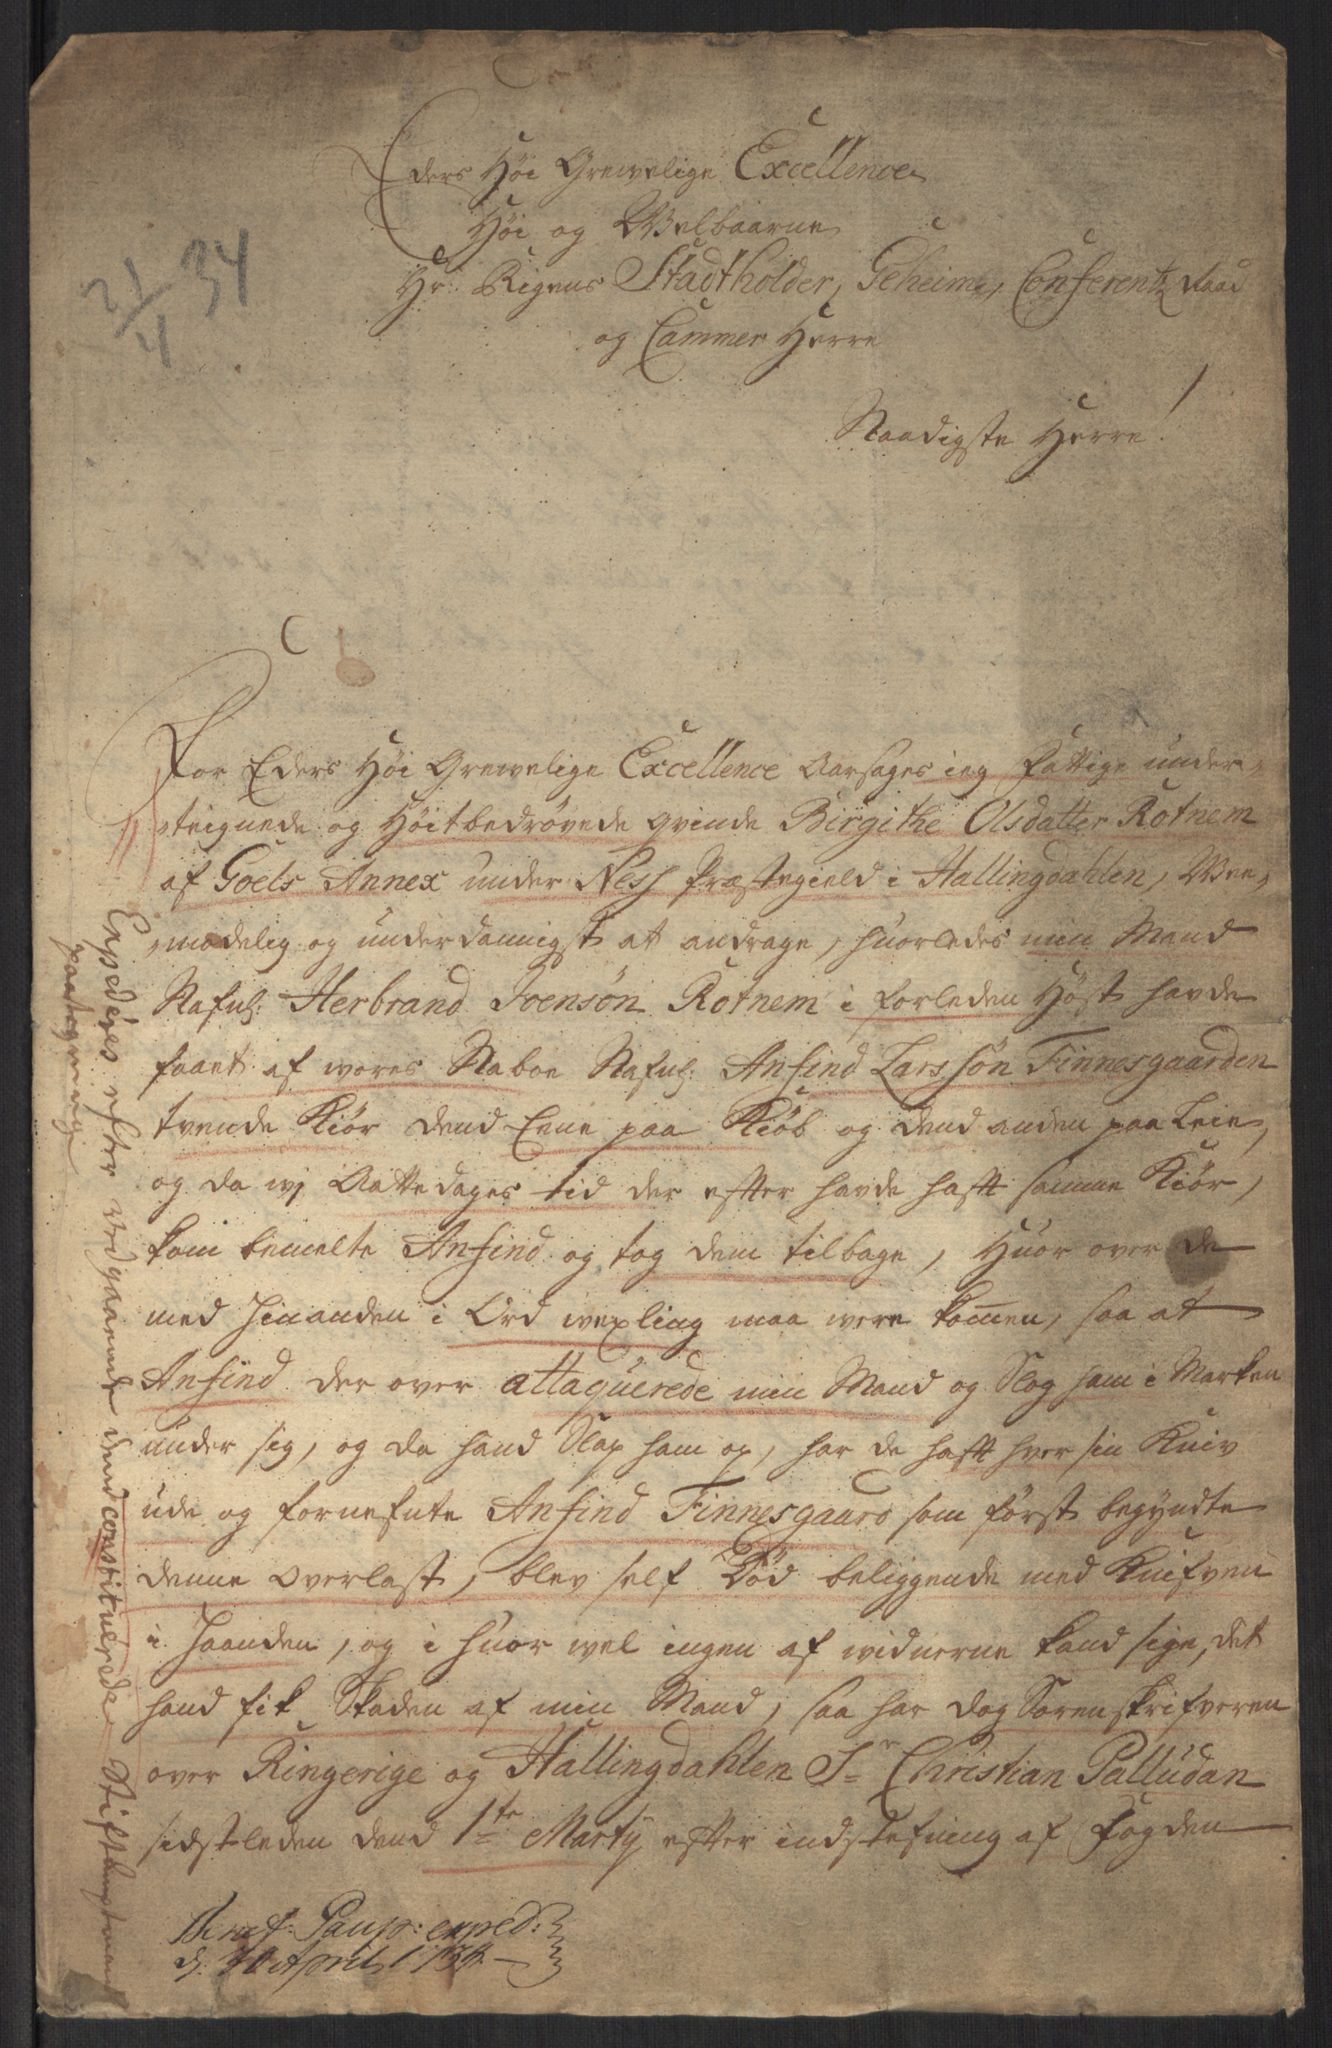 Eders Höi Grewelige Excellence
Höi og Welbaarne
Hr: Rigens Stadtholder, Geheime, Conferentz Raad
og Cammer Herre
Naadigste Herre!
21/4 34
For Eders Höi Grewelige Excellence Aarsages ieg fattige under-
teignede og Höitbedrövede Qvinde Birgithe Olsdatter Rotnem
af Goels Annex under Ness Præstegield i Hallingdahlen, Wee-
modelig og underdannigst at andrage, huorledes min Mand
Nafnl: Herbrand Ivensön Rotnem i forleden Höst havde
faaet af wores Naboe Nafnl: Anfind Larssön Finnesgaarden
tvende Kiör dend Eene paa Kiöb og dend anden paa Leie,
og da wj Aatte dages tid der efter havde hafft samme Kiör,
kom bemelte Anfind og tog dem tilbage, Huor over de
med hinanden i Ord wexling maa were kommen, saa at
Anfind der over attaquerede min Mand og Slog ham i Marken
under sig, og da hand Slap ham op, har de hafft hver sin Kniv
ude og fornefnte Anfind Finnesgaard som först begyndte
denne Overlast, blev self Död beliggende med Knifven
i Haanden, og i huor wel ingen af widnerne kand sige, det
hand fik Skaden af min Mand, saa har dog Sorenskrifveren
over Ringerige og Hallingdahlen Sr Christian Palludan
sidstleden dend 1te Martij efter indstefning af Fogden
Benef: Paup: exped:
d. 30 April 1734.
Expederes efter vedgaaende dend constituerede Stiftbeamptmands
paategning